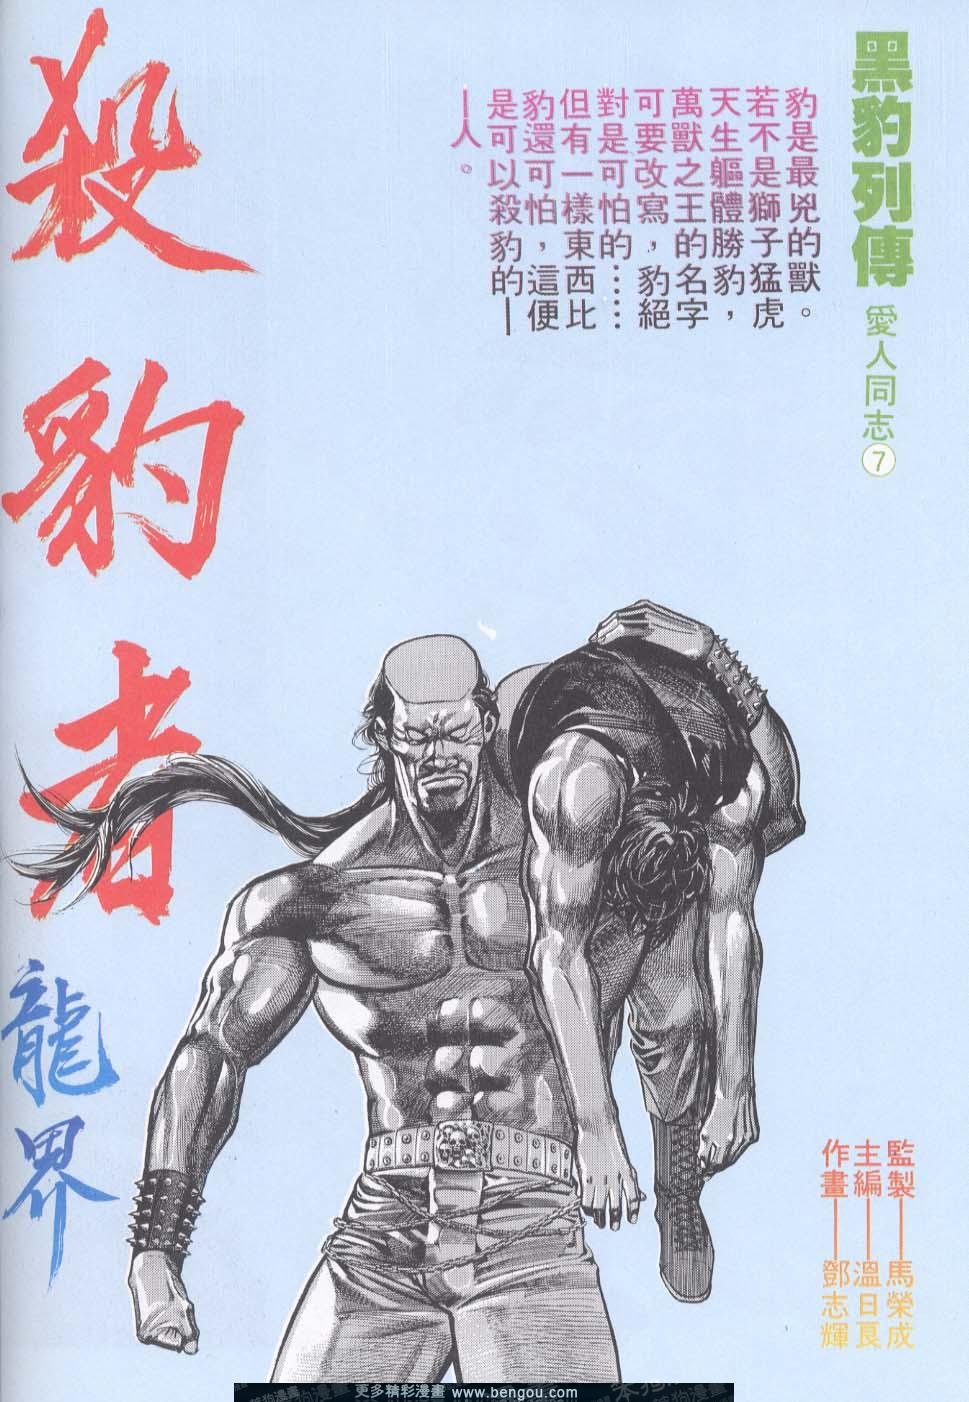 黑豹列傳
愛人同志⑦
豹是最兇的獸。
若不是獅子猛虎
天生軀體勝豹，
萬獸之王的名字
可要改寫，豹絕
對是可怕的……
但有一樣東西比
豹還可怕，這便
是可以殺豹的—
—人。
殺豹者
龍界
監製——馬榮成
主編——溫日良
作畫——鄧志輝
更多精彩漫畫 www.bengou.com